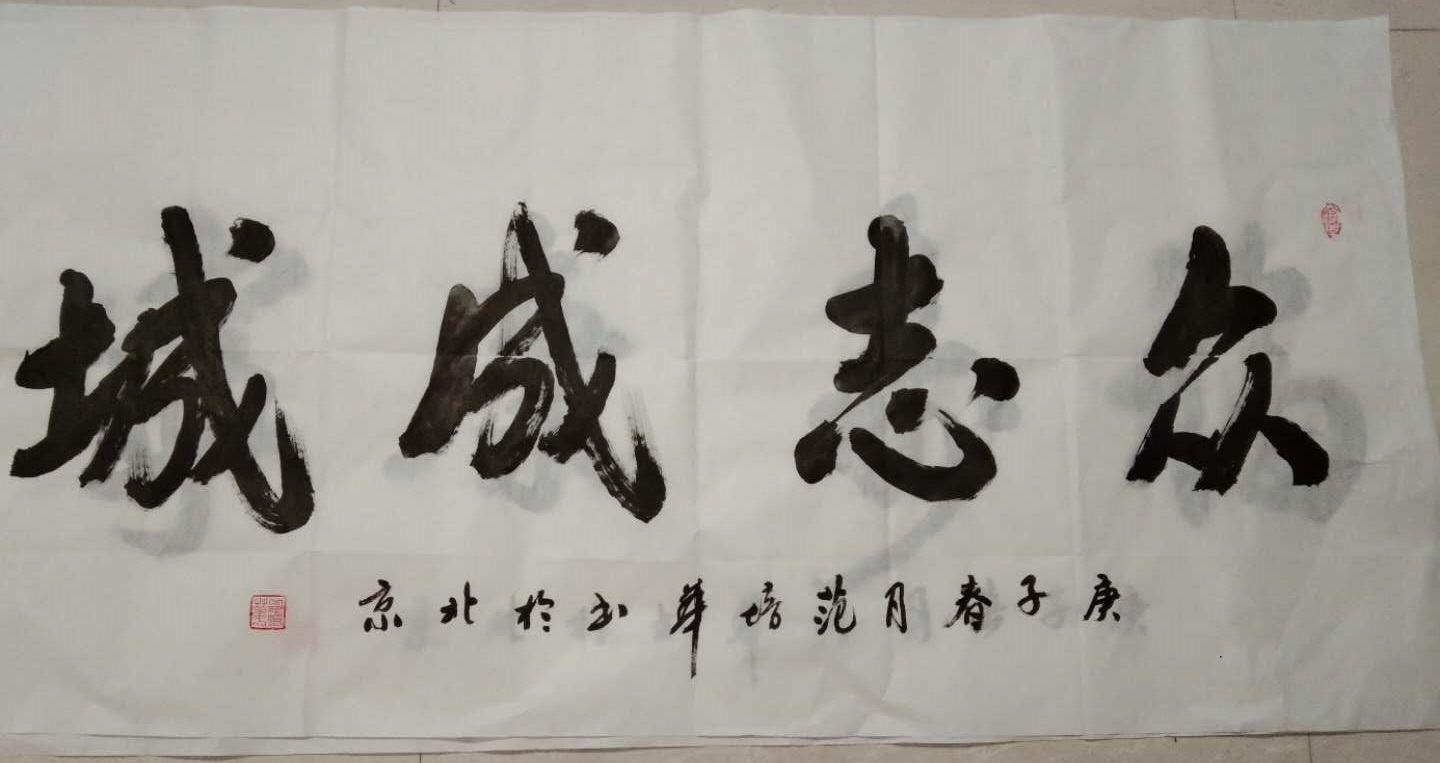 众志成城
庚子春月范培华书於北京